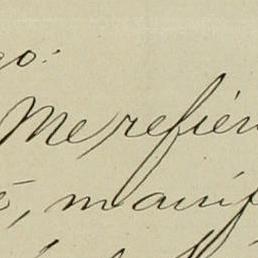 go:
Me refier
, manif